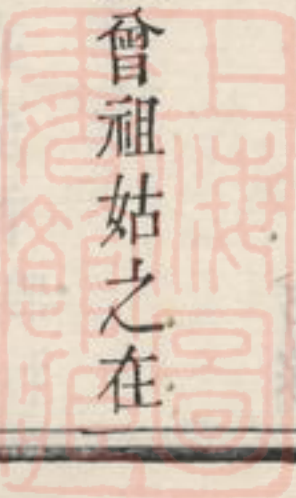 曾祖姑之在